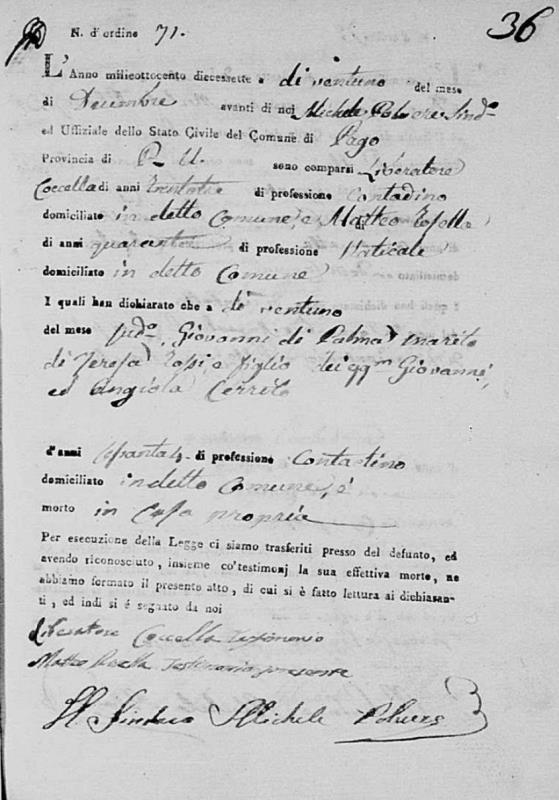 36
N. d'ordine 71.
L'Anno milleottocento diecessette a di ventuno del mese
di Decembre avanti di noi Michele Sind.o
ed Uffiziale dello Stato Civile del Comune di Pago
Provincia di P. U. sono comparsi Liberatore
Coccella di anni di professione Contadino
domiciliato in detto Comune, e Matteo
di anni quaranta di professione Vaticale
domiciliato in detto Comune
I quali han dichiarato che a di ventuno
del mese sud.o Giovanni di Palma marito
di Teresa e figlio dei qq.m Giovanni,
ed Angiola Cerrito
d'anni di professione Contadino
domiciliato in detto Comune, è
morto in Casa propria
Per esecuzione della Legge ci siamo trasferiti presso del defunto, ed
avendo riconosciuto, insieme co'testimonj la sua effettiva morte, ne
abbiamo formato il presente atto, di cui si è fatto lettura ai dichiaran-
ti, ed indi si é segnato da noi
Liberatore Coccella Testimonio
Matteo Testimonio presente
Il Sindaco Michele